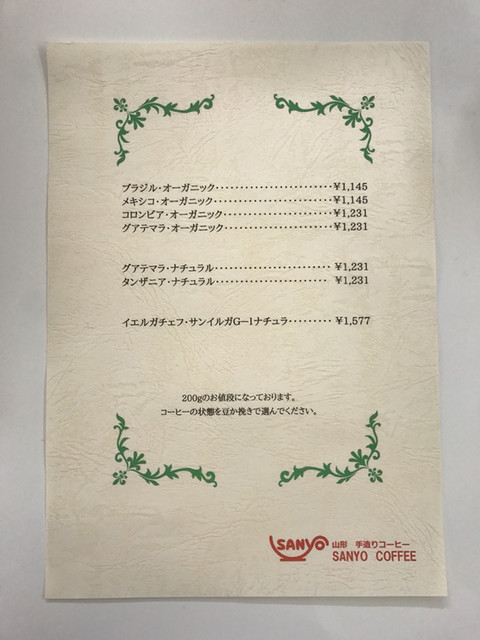 ブラジル・オーガニック························¥1,145
メキシコ・オーガニック························¥1,145
コロンビア・オーガニック······················¥1,231
グアテマラ・オーガニック······················¥1,231
グアテマラ・ナチュラル························¥1,231
タンザニア・ナチュラル························¥1,231
イエルガチェフ・サンイルガG-1ナチュラ·········¥1,577
200gのお値段になっております。
コーヒーの状態を豆か挽きで選んでください。
SANYO 山形 手造りコーヒー
SANYO COFFEE